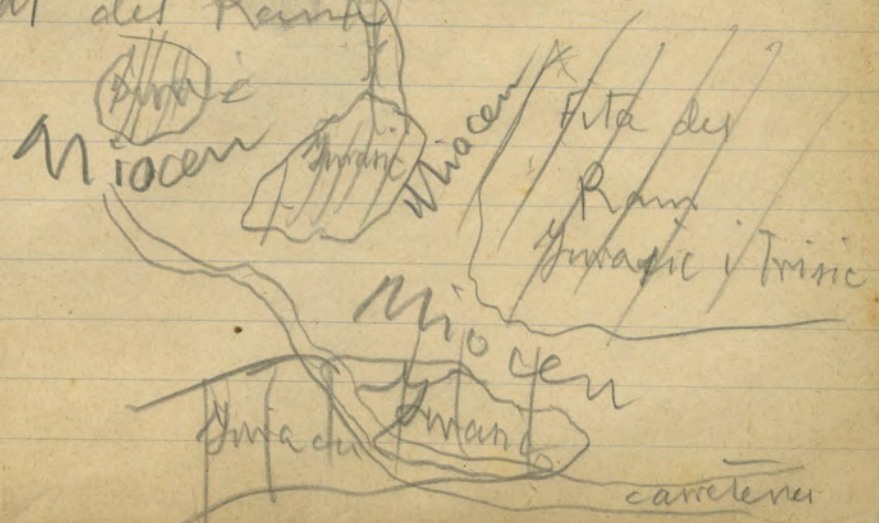 des Ram
Jurasic
Miocen
Jurasic
Miocen
Fita des
Ram
Jurasic i Triasic
Miocen
Jurasic
carretera